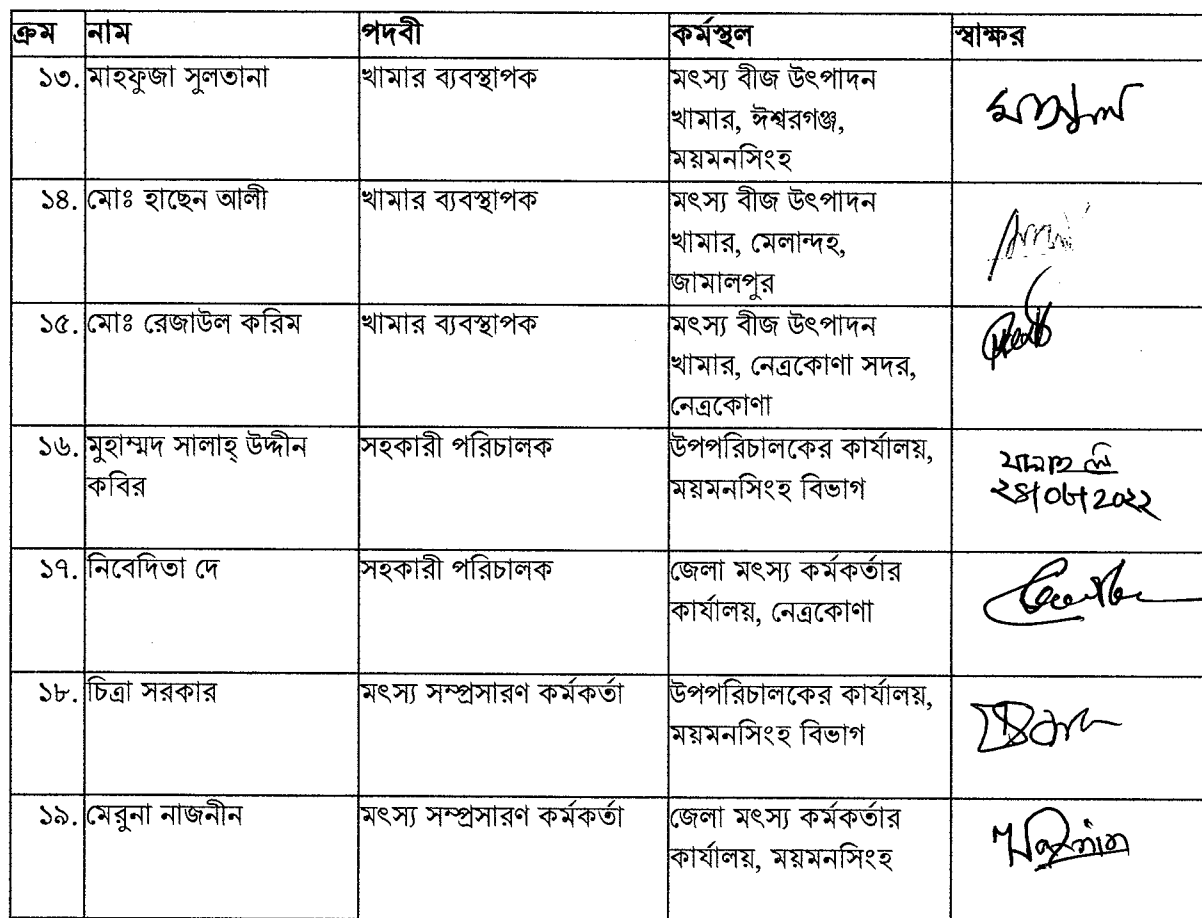 ক্রম নাম পদবী কর্মস্থল স্বাক্ষর
১৩. মাহফুজা সুলতানা খামার ব্যবস্থাপক মৎস্য বীজ উৎপাদন
খামার, ঈশ্বরগঞ্জ,
ময়মনসিংহ
১৪. মোঃ হাছেন আলী খামার ব্যবস্থাপক মৎস্য বীজ উৎপাদন
খামার, মেলান্দহ,
জামালপুর
১৫. মোঃ রেজাউল করিম খামার ব্যবস্থাপক মৎস্য বীজ উৎপাদন
খামার, নেত্রকোণা সদর,
নেত্রকোণা
১৬. মুহাম্মদ সালাহ্ উদ্দীন সহকারী পরিচালক উপপরিচালকের কার্যালয়,
কবির ময়মনসিংহ বিভাগ ২৪/০৮/২০২২
১৭. নিবেদিতা দে সহকারী পরিচালক জেলা মৎস্য কর্মকর্তার
কার্যালয়, নেত্রকোণা
১৮. চিত্রা সরকার মৎস্য সম্প্রসারণ কর্মকর্তা উপপরিচালকের কার্যালয়,
ময়মনসিংহ বিভাগ
১৯. মেরুনা নাজনীন মৎস্য সম্প্রসারণ কর্মকর্তা জেলা মৎস্য কর্মকর্তার
কার্যালয়, ময়মনসিংহ